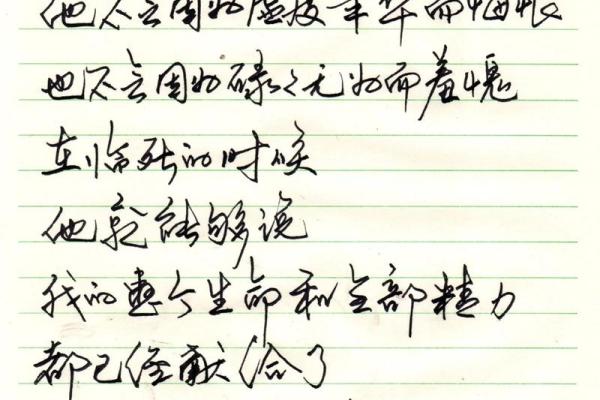 他不会因为虚度年华而悔恨
也不会因为碌々无为而羞愧
在临死的时候
他就能够说
我的整个生命和全部精力
都已经献给了